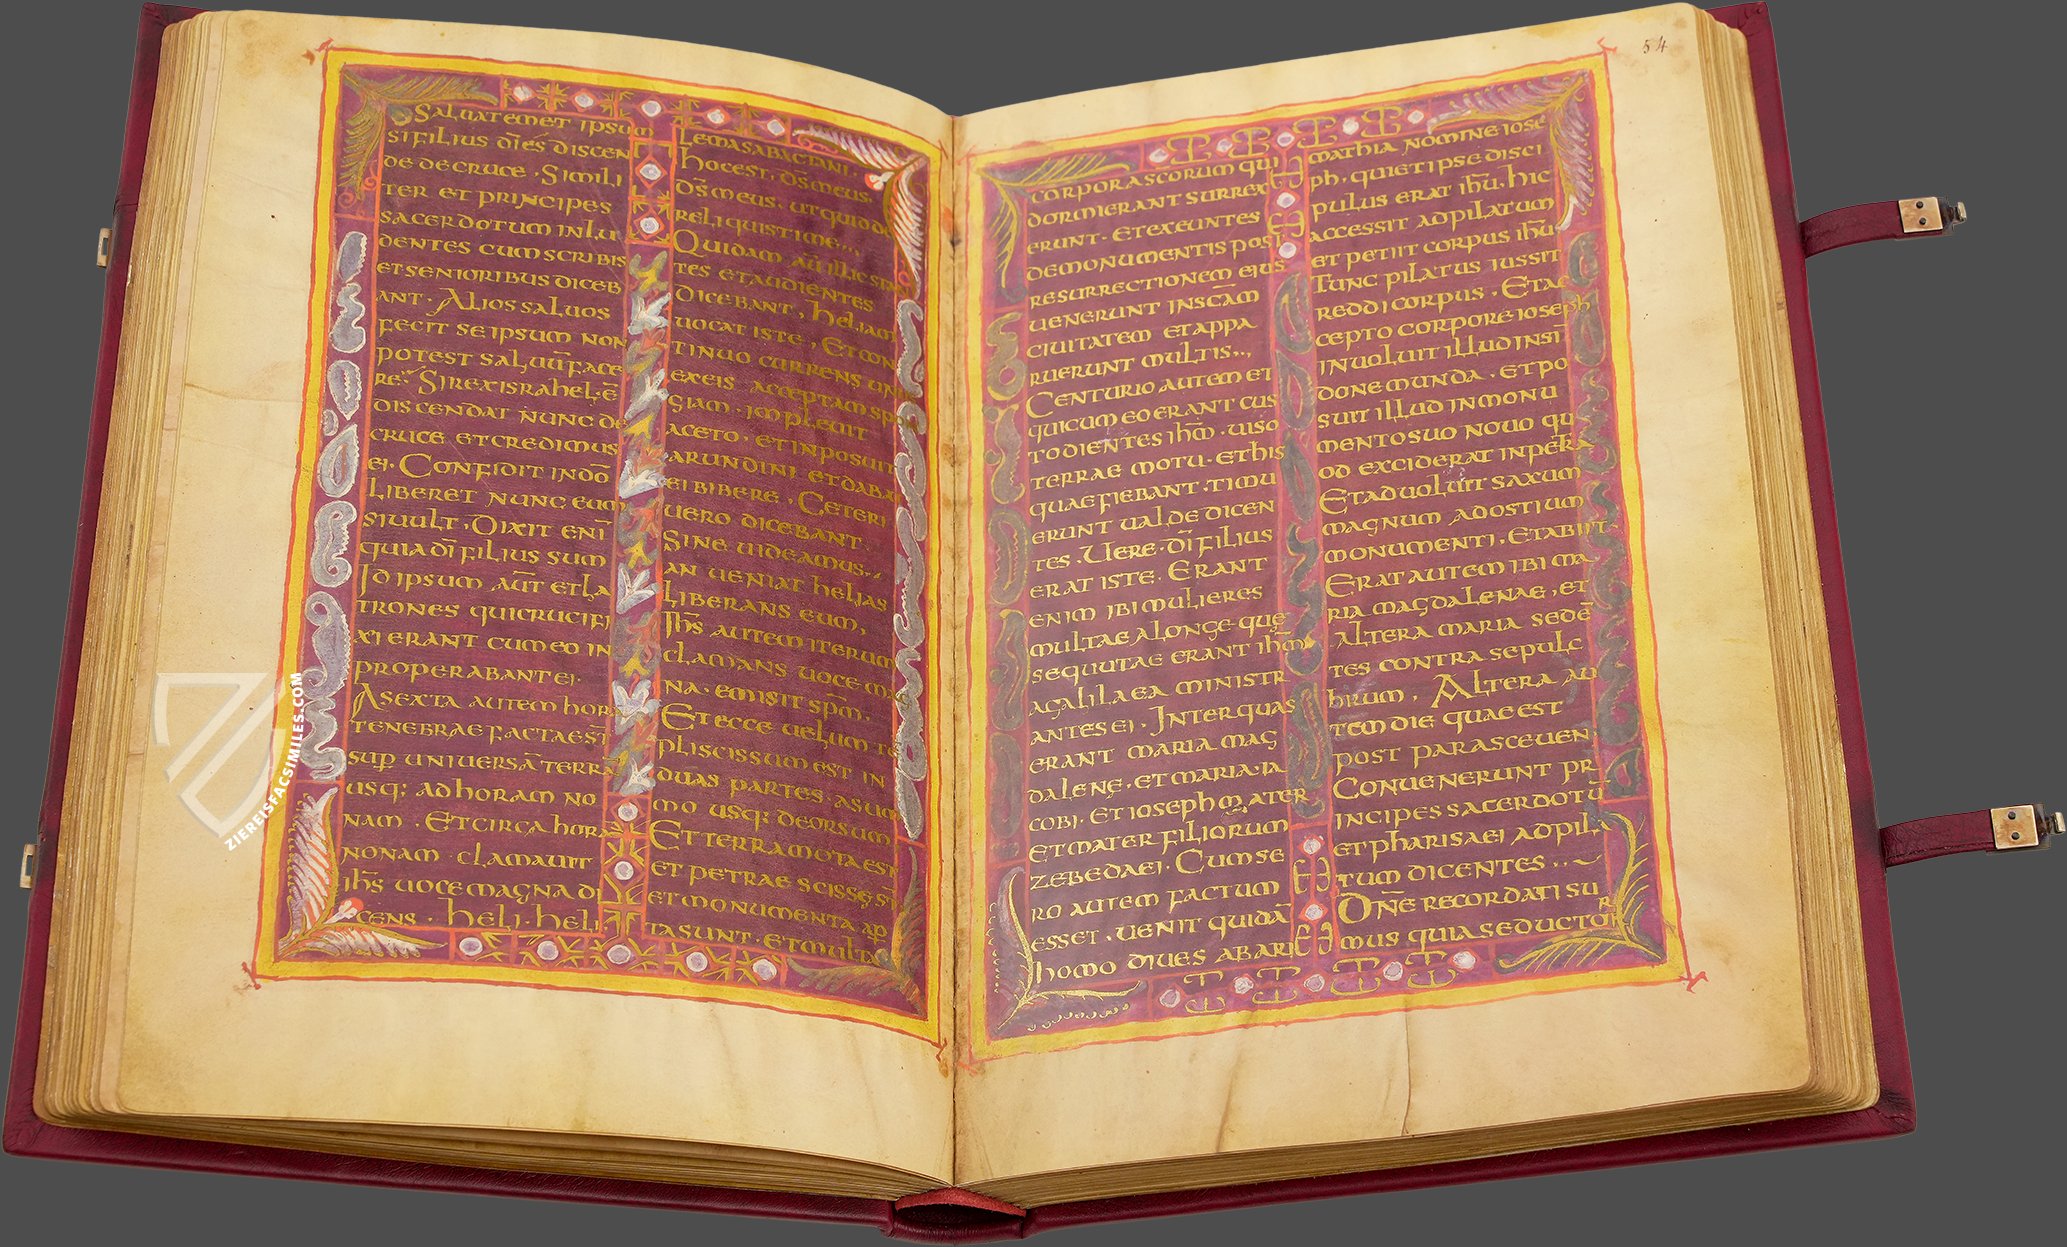 Saluatemet ipsum
si filius dī es discen
de de cruce · Simili
ter et principes
sacerdotum inlu
dentes cum scribis
et senioribus diceb
ant · Alios saluos
fecit se ipsum non
potest saluū face
re · Si rex israhel · ē
discendat nunc de
cruce et credimus
ei · Confidit in dō
liberet nunc eum
si uult · dixit enī
quia dī filius sum
Id ipsum aūt et la
trones qui crucifi
xi erant cum eo in
properabant ei ·
A sexta autem hor
tenebrae factae sт̄
sup̄ uniuersā terrā
usq; ad horam no
nam · Et circa hora
nonam · clamauit
ih̄s uoce magna di
cens · heli · heli
lemasabactani ·
hoc est · d̄s meus ·
d̄s meus · ut quid de
reliquisti me ·,·
Quidam aū illic stan
tes et audientes
dicebant, heliam
uocat iste, Et con
tinuo currens un
ex eis acceptam sp
giam · impleuit
aceto · et inposuit
arundini et daba
ei bibere, Ceteri
uero dicebant
Sine uideamus ·,,
an ueniat helias
liberans eum,
ih̄s autem iterum
clamans uoce ma
na · emisit sp̄m ·
Et ecce uelum te
pli scissum est in
duas partes · a sum
mo usq; deorsum
Et terra mota est
et petrae scisse sт̄
et monumenta ap
ta sunt · et multa
54
corpora scorum qui
dormierant surrex
erunt · et exeuntes
de monumentis post
resurrectionem eius
uenerunt in scām
ciuitatem et appa
ruerunt multis ·,,
Centurio autem et
qui cum eo erant cus
todientes ih̄m · uiso
terrae motu · et his
quae fiebant · timu
erunt ualde dicen
tes · Uere · dī filius
erat iste · Erant
enim ibi mulieres
multae a longe que
sequutae erant ih̄m
a galilaea ministr
antes ei · Inter quas
erant maria mag
dalene · et maria · ia
cobi · et ioseph mater
et mater filiorum
zebedaei · Cum se
ro autem factum
esset, uenit quidā
homo diues ab ari
mathia nomine iose
ph · qui et ipse disci
pulus erat ih̄u, hic
accessit ad pilatum
et petiit corpus ih̄u
Tunc pilatus iussit
reddi corpus, Et ac
cepto corpore ioseph
inuoluit illud in si
done munda · et po
suit illud in monu
mento suo nouo qu
od exciderat in petra
Et aduoluit saxum
magnum ad ostium
monumenti · et abiit
Erat autem ibi ma
ria magdalenae, et
altera maria sedē
tes contra sepulc
hrum, Altera au
tem die quae est
post parasceuen,
Conuenerunt pr
incipes sacerdotū
et pharisaei ad pila
tum dicentes ·,·~
Dn̄e recordati su
mus quia seductor
ZIEREISFACSIMILES.COM